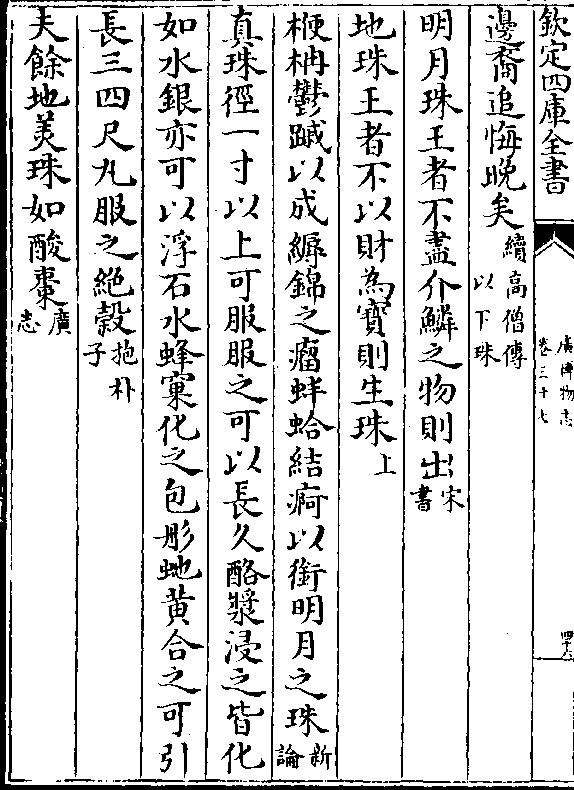 欽定四庫全書
廣博物志
卷三十七
四十六
邊裔追悔晚矣續高僧傳以下珠
明月珠王者不盡介鱗之物則出宋書
地珠王者不以財為寶則生珠上
楩柟鬱蹙以成縟錦之瘤蚌蛤結痾以銜明月之珠新論
真珠徑一寸以上可服服之可以長久酪漿浸之皆化
如水銀亦可以浮石水蜂窠化之包彤虵黃合之可引
長三四尺丸服之絶穀抱朴子
夫餘地美珠如酸棗廣志